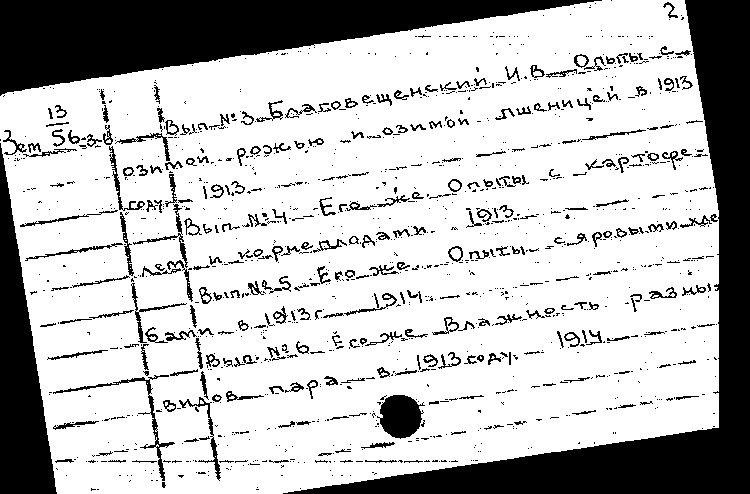 2.
Вып. №3. Благовещенский, И.В. Опыты с
13
Зем 56-3-6
озимой рожью и озимой пшеницей в 1913
году. 1913.
Вып. №4. Его же. Опыты с картофе-
лем и корнеплодами. 1913.
Вып. №5. Его же. Опыты с яровыми хле
бами в 1913 г. 1914.
Вып. №6 Его же Влажность разны-
видов пара. в 1913 году. 1914.